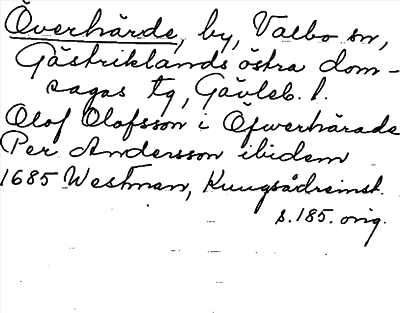 Överhärde, by, Valbo sn,
Gästriklands östra dom-
sagas tg, Gävleb. l.
Olof Olofsson i Öfwerhärade
Per Andersson ibidem
1685 Westman, Kungsådreinst.
s. 185. orig.